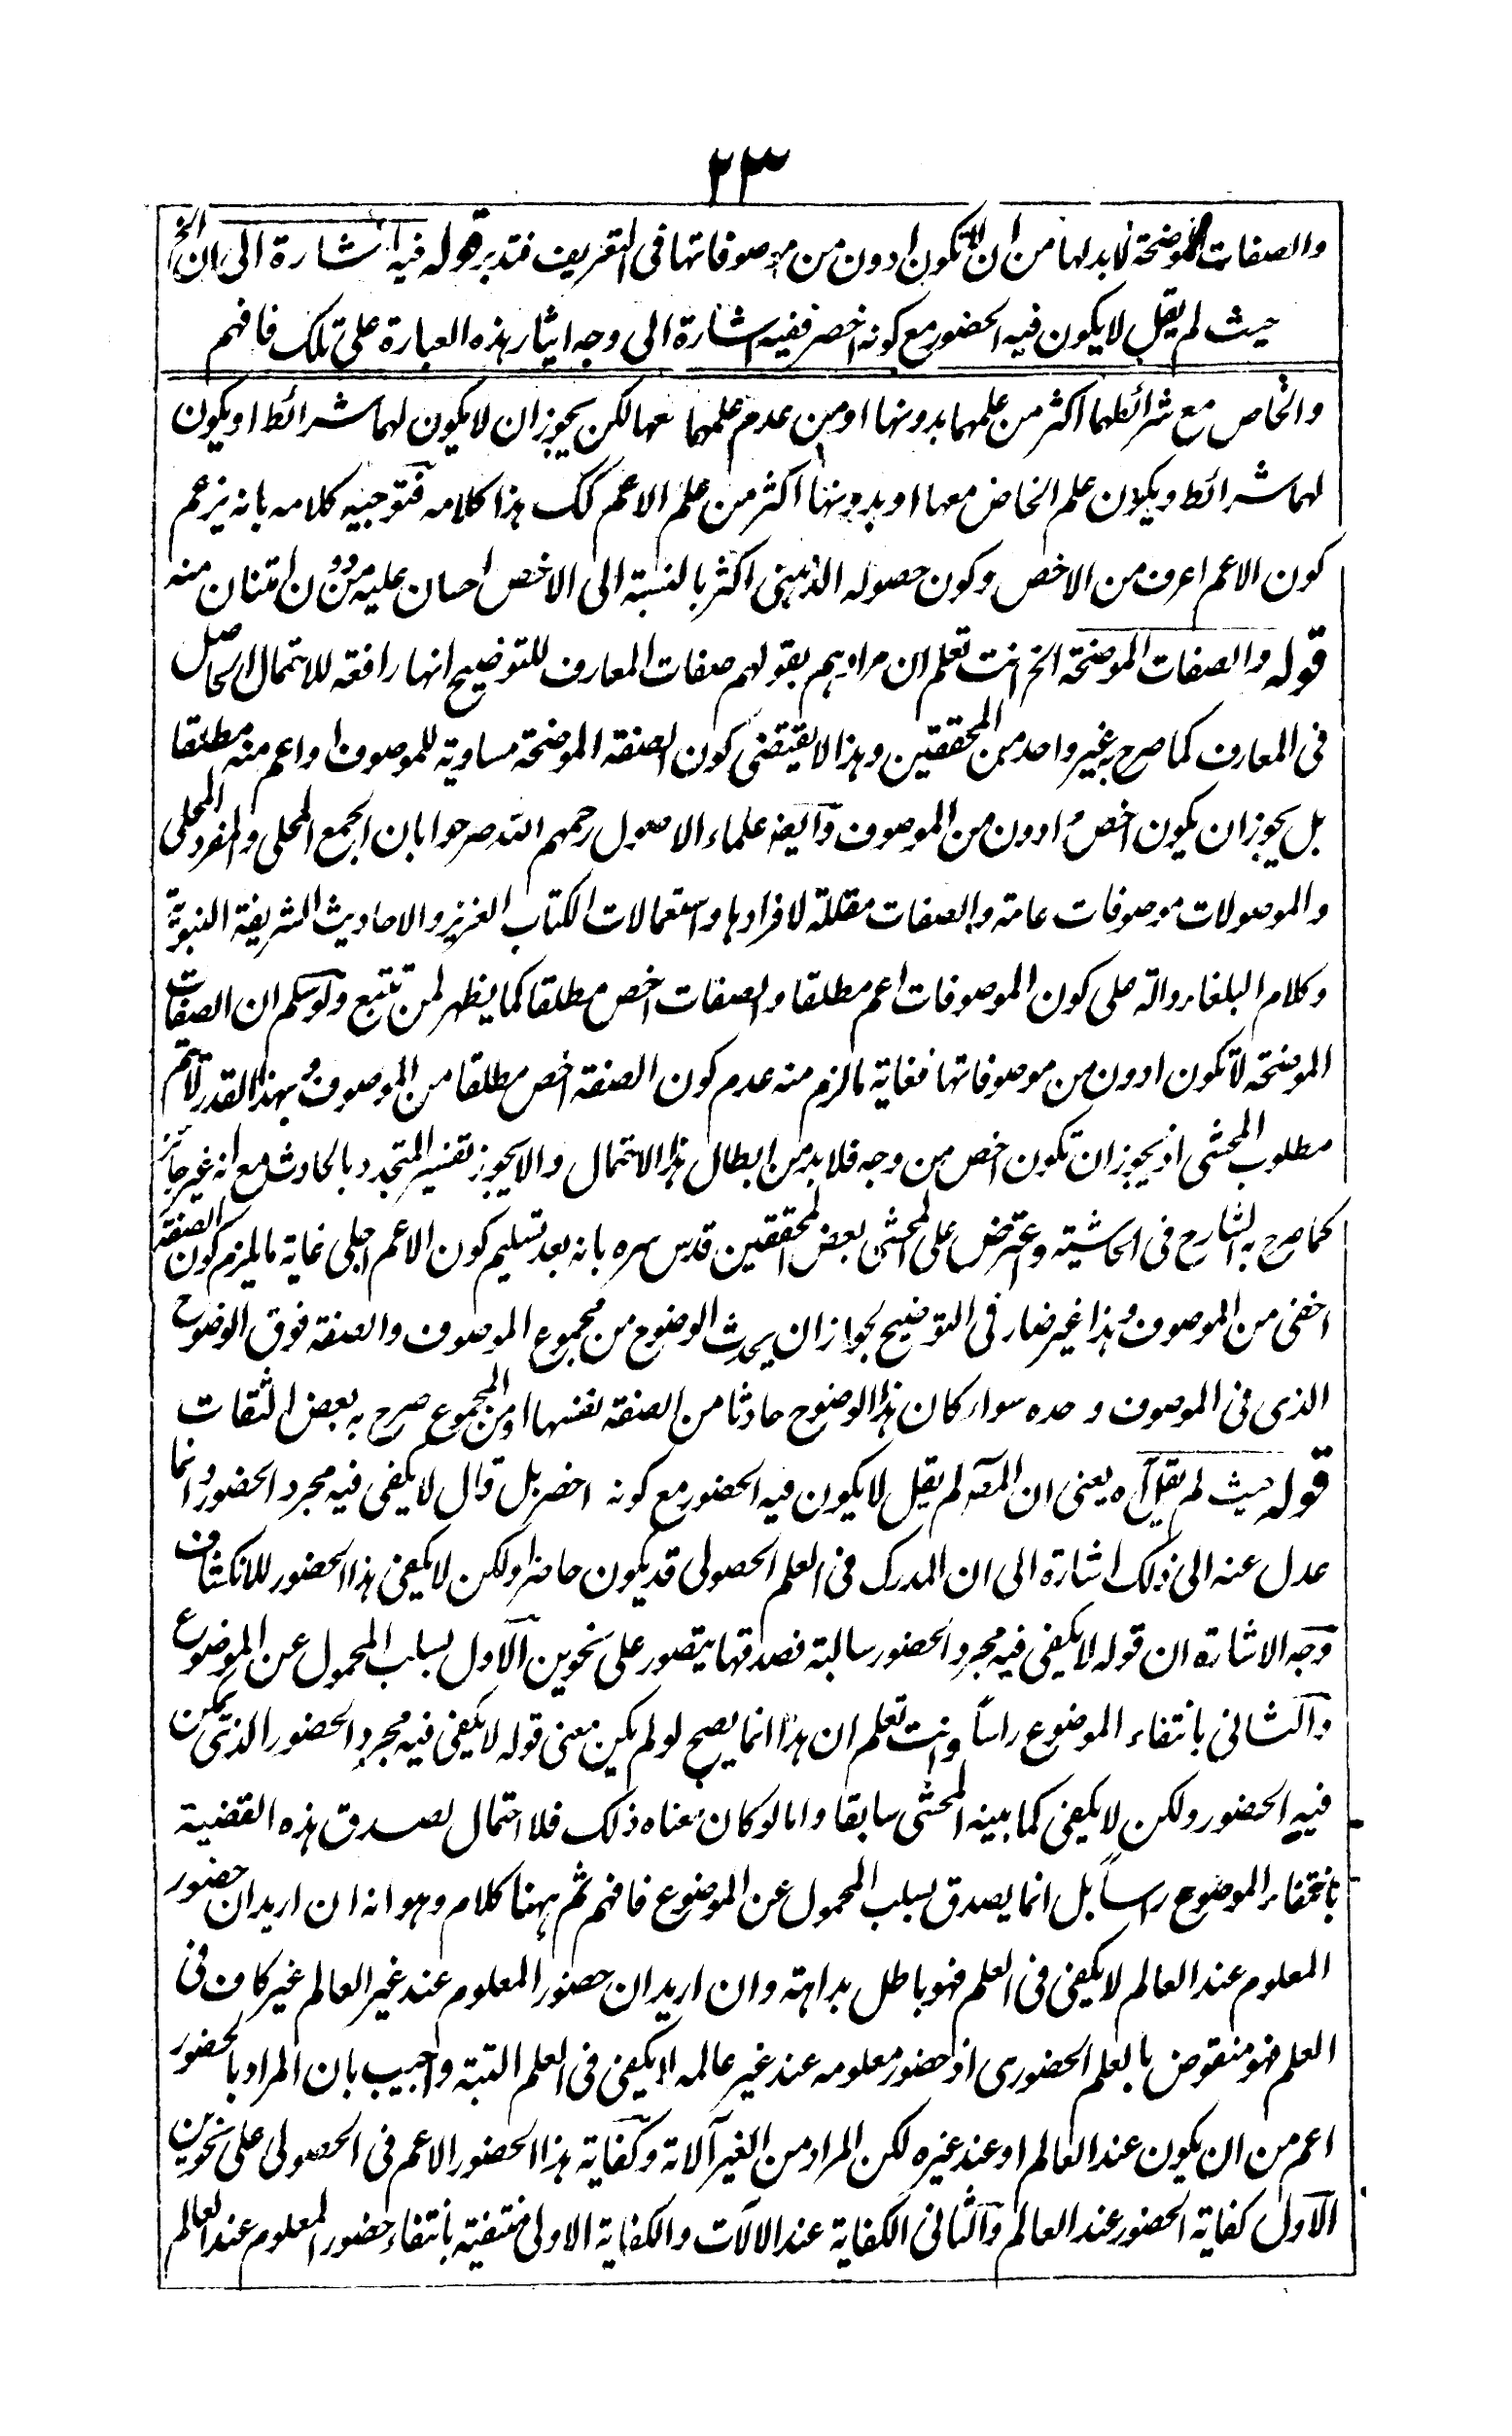 ٢٣
والصفات الموضحة لا بد لها من ان لا تكون ادون من موصوفاتها فى التعريف فتدبر قوله فيه اشارة الى ان الخ
حيث لم يقل لا يكون فيه الحضور مع كونه اخصر ففيه اشارة الى وجه ايثار هذه العبارة على تلك فافهم
والخاص مع شرائطهما اكثر من علمهما بدونها او من عدم علمهما معها لكن يجوز ان لا يكون لهما شرائط او يكون
لهما شرائط ويكون علم الخاص معها او بدونها اكثر من علم الاعم كك هذا كلامه فتوجيه كلامه بانه يزعم
كون الاعم اعرف من الاخص وكون حصوله الذهنى اكثر بالنسبة الى الاخص احسان عليه من دون امتنان منه
قوله والصفات الموضحة الخ انت تعلم ان مرادهم بقولهم صفات المعارف للتوضيح انها رافعة للاحتمال الحاصل
فى المعارف كما صرح به غير واحد من المحققين وهذا لا يقتضى كون الصفة الموضحة مساوية للموصوف او اعم منه مطلقا
بل يجوز ان يكون اخص وادون من الموصوف وايضا علماء الاصول رحمهم الله صرحوا بان الجمع المحلى والمفرد المحلى
والموصولات موصوفات عامة والصفات مقللة لافرادها واستعمالات الكتاب العزيز والاحاديث الشريفة النبوية
وكلام البلغاء دالة على كون الموصوفات اعم مطلقا والصفات اخص مطلقا كما يظهر لمن تتبع ولو سلم ان الصفات
الموضحة لا تكون ادون من موصوفاتها فغاية ما لزم منه عدم كون الصفة اخص مطلقا من الموصوف وبهذا القدر لا يتم
مطلوب المحشى اذ يجوز ان تكون اخص من وجه فلا بد من ابطال هذا الاحتمال والا يجوز تفسير المتجدد بالحادث مع انه غير جائز
كما صرح به الشارح فى الحاشية واعترض على المحشى بعض المحققين قدس سره بانه بعد تسليم كون الاعم اجلى غاية ما يلزم كون الصفة
اخفى من الموصوف وهذا غير ضار فى التوضيح لجواز ان يحدث الوضوح من مجموع الموصوف والصفة فوق الوضوح
الذى فى الموصوف وحده سواء كان هذا الوضوح حادثا من الصفة نفسها او من المجموع صرح به بعض الثقات
قوله حيث لم يقل آه يعنى ان المصـ لم يقل لا يكون فيه الحضور مع كونه اخصر بل قال لا يكفى فيه مجرد الحضور وانما
عدل عنه الى ذلك اشارة الى ان المدرك فى العلم الحصولى قد يكون حاضرا ولكن لا يكفى هذا الحضور للانكشاف
وجه الاشارة ان قوله لا يكفى فيه مجرد الحضور سالبة فصدقها يتصور على نحوين الاول بسلب المحمول عن الموضوع
والثانى بانتفاء الموضوع راسًا وانت تعلم ان هذا انما يصح لو لم يكن معنى قوله لا يكفى فيه مجرد الحضور الذى يمكن
فيه الحضور ولكن لا يكفى كما بينه المحشى سابقا واما لو كان معناه ذلك فلا احتمال لصدق هذه القضية
بانتفاء الموضوع راسًا بل انما يصدق بسلب المحمول عن الموضوع فافهم ثم ههنا كلام وهو انه ان اريد ان حضور
المعلوم عند العالم لا يكفى فى العلم فهو باطل بداهة وان اريد ان حضور المعلوم عند غير العالم غير كاف فى
العلم فهو منقوض بالعلم الحضورى اذ حضور معلومه عند غير عالمه لا يكفى فى العلم البتة واجيب بان المراد بالحضور
اعم من ان يكون عند العالم او عند غيره لكن المراد من الغير آلاته وكفاية هذا الحضور الاعم فى الحصولى على نحوين
الاول كفاية الحضور عند العالم والثانى الكفاية عند الآلات والكفاية الاولى منتفية بانتفاء حضور المعلوم عند العالم